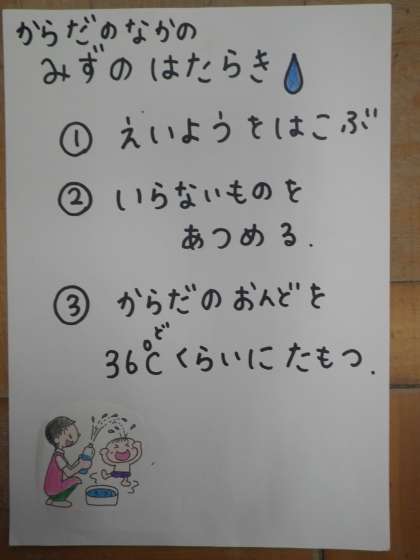 からだのなかの
みずのはたらき
① えいようをはこぶ
② いらないものを
あつめる.
③ からだのおんどを
ど
36℃くらいにたもつ.